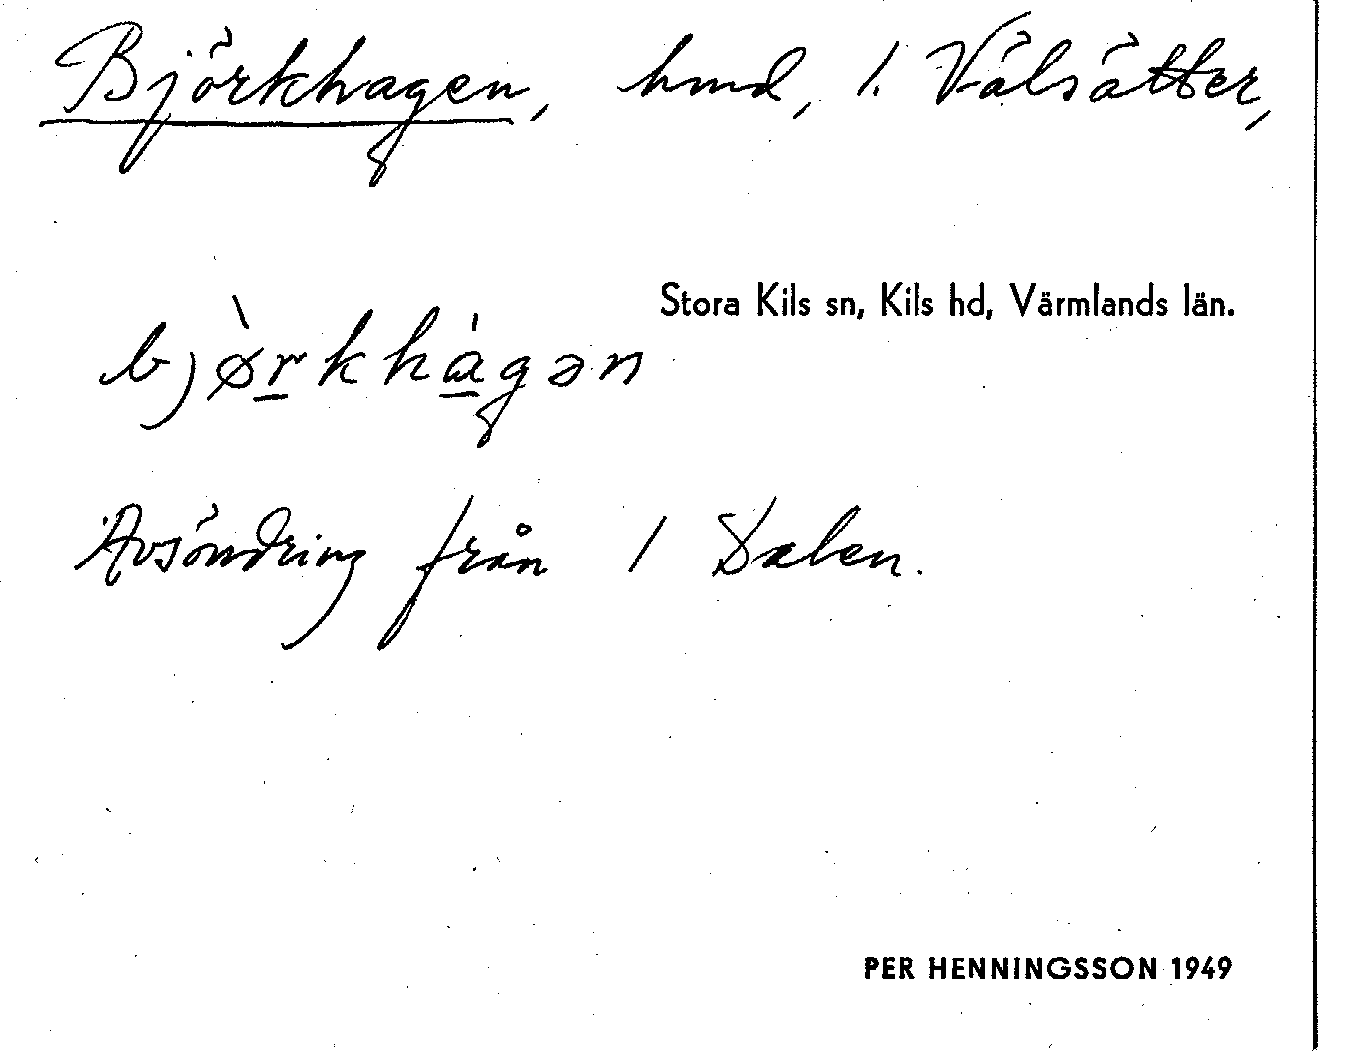 Björkhagen, hmd, 1. Välsätter,
Stora Kils sn, Kils hd, Värmlands län.
bjø̀rkhágən
Avsöndring från 1 Dalen.
PER HENNINGSSON 1949